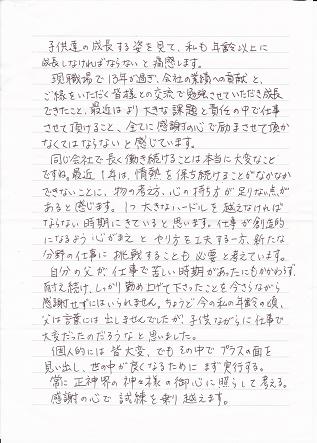 子供達の成長する姿を見て、私も年齢以上に
成長しなければならないと痛感します。
現職場で13年が過ぎ、会社の業績への貢献と、
ご縁をいただく皆様との交流で勉強させていただき成長
できたこと、最近はより大きな課題と責任の中で仕事
させて頂けること、全てに感謝の心で励まさせて頂か
なくてはならないと感じています。
同じ会社で長く働き続けることは本当に大変なこと
ですね。最近1年は、情熱を保ち続けることがなかなか
できないことに、物の考え方、心の持ち方が足りない点が
あると感じます。1つ大きなハードルを越えなければ
ならない時期にきていると思います。仕事が創造的
になるよう心がまえとやり方を工夫する一方、新たな
分野の仕事に挑戦することも必要と考えています。
自分の父が仕事で苦しい時期があったにもかかわらず、
耐え続け、しっかり勤め上げて下さったことを今さらながら
感謝せずにはいられません。ちょうど今の私の年齢の頃、
父は言葉には出しませんでしたが、子供ながらに仕事で
大変だったのだろうなと思いました。
個人的には皆大変、でもその中でプラスの面を
見い出し、世の中が良くなるためにまず実行する。
常に正神界の神々様の御心に照らして考える。
感謝の心で試練を乗り越えます。